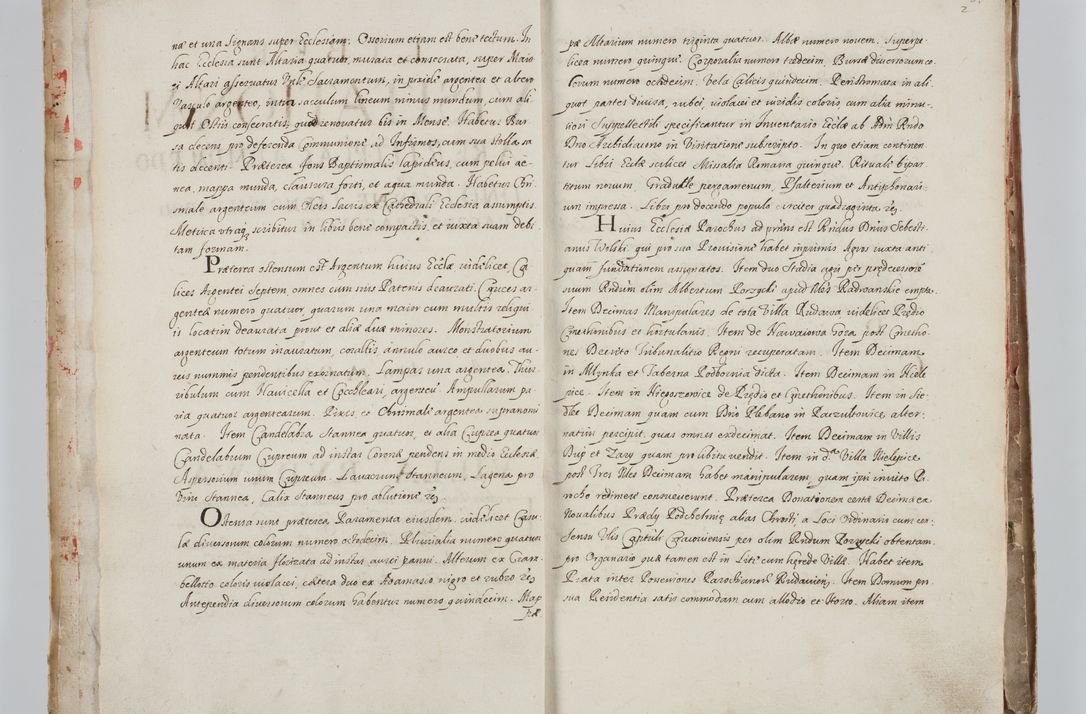 næ et una Signans super Ecclesiam. Ossorium etiam est bene tectum. In
hac Ecclesia sunt Altaria quatuor, murata et consecrata, super Maio
ri Altari asservatur Sacramentum, in pixide argentea et altero
Vasculo argenteo, intra sacculum lineum minus mundum, cum ali
quot Ostiis consecratis, quod renovatur bis in Mense. Habetur Bur
sa decens pro deferenda Communione ad Infirmos, cum sua Stolla sa
tis decenti. Præterea fons Baptismalis lapideus, cum pelui æ
nea, mappa munda, clausura forti, et aqua munda. Habetur Chri
smale argenteum cum Oleis Sacris ex Cathedrali Ecclesia assumptis.
Metrica utraq scribitur in libris bene compactis, et iuxta suam debi
tam formam.
Præterea ostensum est Argentum huius Ecclæ videlicet, Ca
lices Argentei Septem, omnes cum suis Patenis deaurati. Cruces ar
genteæ numero quatuor quarum una maior cum multis reliqui
is locatim deaurata prout et aliæ duæ minores. Monstratorium
argenteum totum inauratum, corallis, annulo aureo et duobus au
reis nummis pendentibus exornatum. Lampas una argentea. Thur
ribulum cum Navicella et Cochleari argenteu. Ampullarum pa
ria quatuor argentearum. Pixis, et Chrismale argentea supranomi
nata. Item Candelabra stannea quatuor, et alia Cuprea quatuor
Candelabrum Cupreum ad instar Coronæ pendens in medio Ecclesiæ.
Aspersorium unum Cupreum. Lavacrum Stanneum, Lagena pro
Vino Stannea, Calix Stanneus pro ablutione
Ostensa sunt præterea Paramenta eiusdem videlicet Casu
læ diversorum colorum numero octodecim. Pluvialia numero quatuor
unum ex materia florizata ad instar aurei panni. Alterum ex Czam
bellotto coloris violacei, cætera duo ex Adamasco nigro et rubro
Antependia diversorum colorum habentur numero quindecim. Map
pæ
2
pæ Altarium numero triginta quatuor. Albæ numero novem. Superpe
licea numero quinque. Corporalia numero tredecim, Bursæ diversorum co
lorum numero octodecim. Vela Calicis quindecim. Peristromata in ali
quot partes divisa, rubei, violacei et viridis coloris cum alia minu
tiori Suppellectili specificantur in Inventario Ecclæ ab Adm Rndo
Dno Archidiacono in Visitatione subscripto. In quo etiam continen
tur Libri Ecclæ scilicet Missalia Romana quinque. Rituale bipar
titum novum, Graduale pergamenum, Psalterium et Antiphonari
um impressa. Libri pro docendo populo circiter quadraginta
Huius Ecclesiæ Parochus ad præns est Rndus Dnus Sebasti
anus Wolski, qui pro sua Provisione habet inprimis Agros iuxta anti
quam fundationem assignatos. Item duo Stadia agri per prædecesso
suum Rndum olim Albertum Porzycki apud Nbles Radwanskie empta.
Item Decimas Manipulares de tota Villa Rudawa videlicet Prædio
Cmethonibus et hortulanis. Item de Nawaiowa Gora post Cmetho
nes Decreto Tribunalitio Regni recuperatam. Item Decimam
in Mlynka et Taberna Podbornia dicta. Item Decimam in Niele
pice. Item in Nieposzowice de Prædio et Cmethonibus. Item in Sie
dlce Decimam quam cum Dno Plebano in Paczultowice, alter
natim percipit, quas omnes exdecimat. Item Decimam in Villis
Dup et Zary quam pro libitu vendit. Item in dta Villa Nielepice
post Tres Nbles Decimam habet manipularem, quam ipsi invito Pa
rocho redimere consueverunt. Præterea Donationem certæ Decimæ ex
Novalibus Prædy Podchelmie alias Chrosti, a Loci Ordinario cum con
sensu Vblis Captuli Cracoviensis per olim Rndum Porzycki obtentam
pro Organario quæ tamen est in Lite cum hærede Villæ. Habet item
Prata inter Possessiones Parochianorum Rudaviensi. Item Domum pro
sua Residentia satis commodam cum allodio et Horto. Aliam item